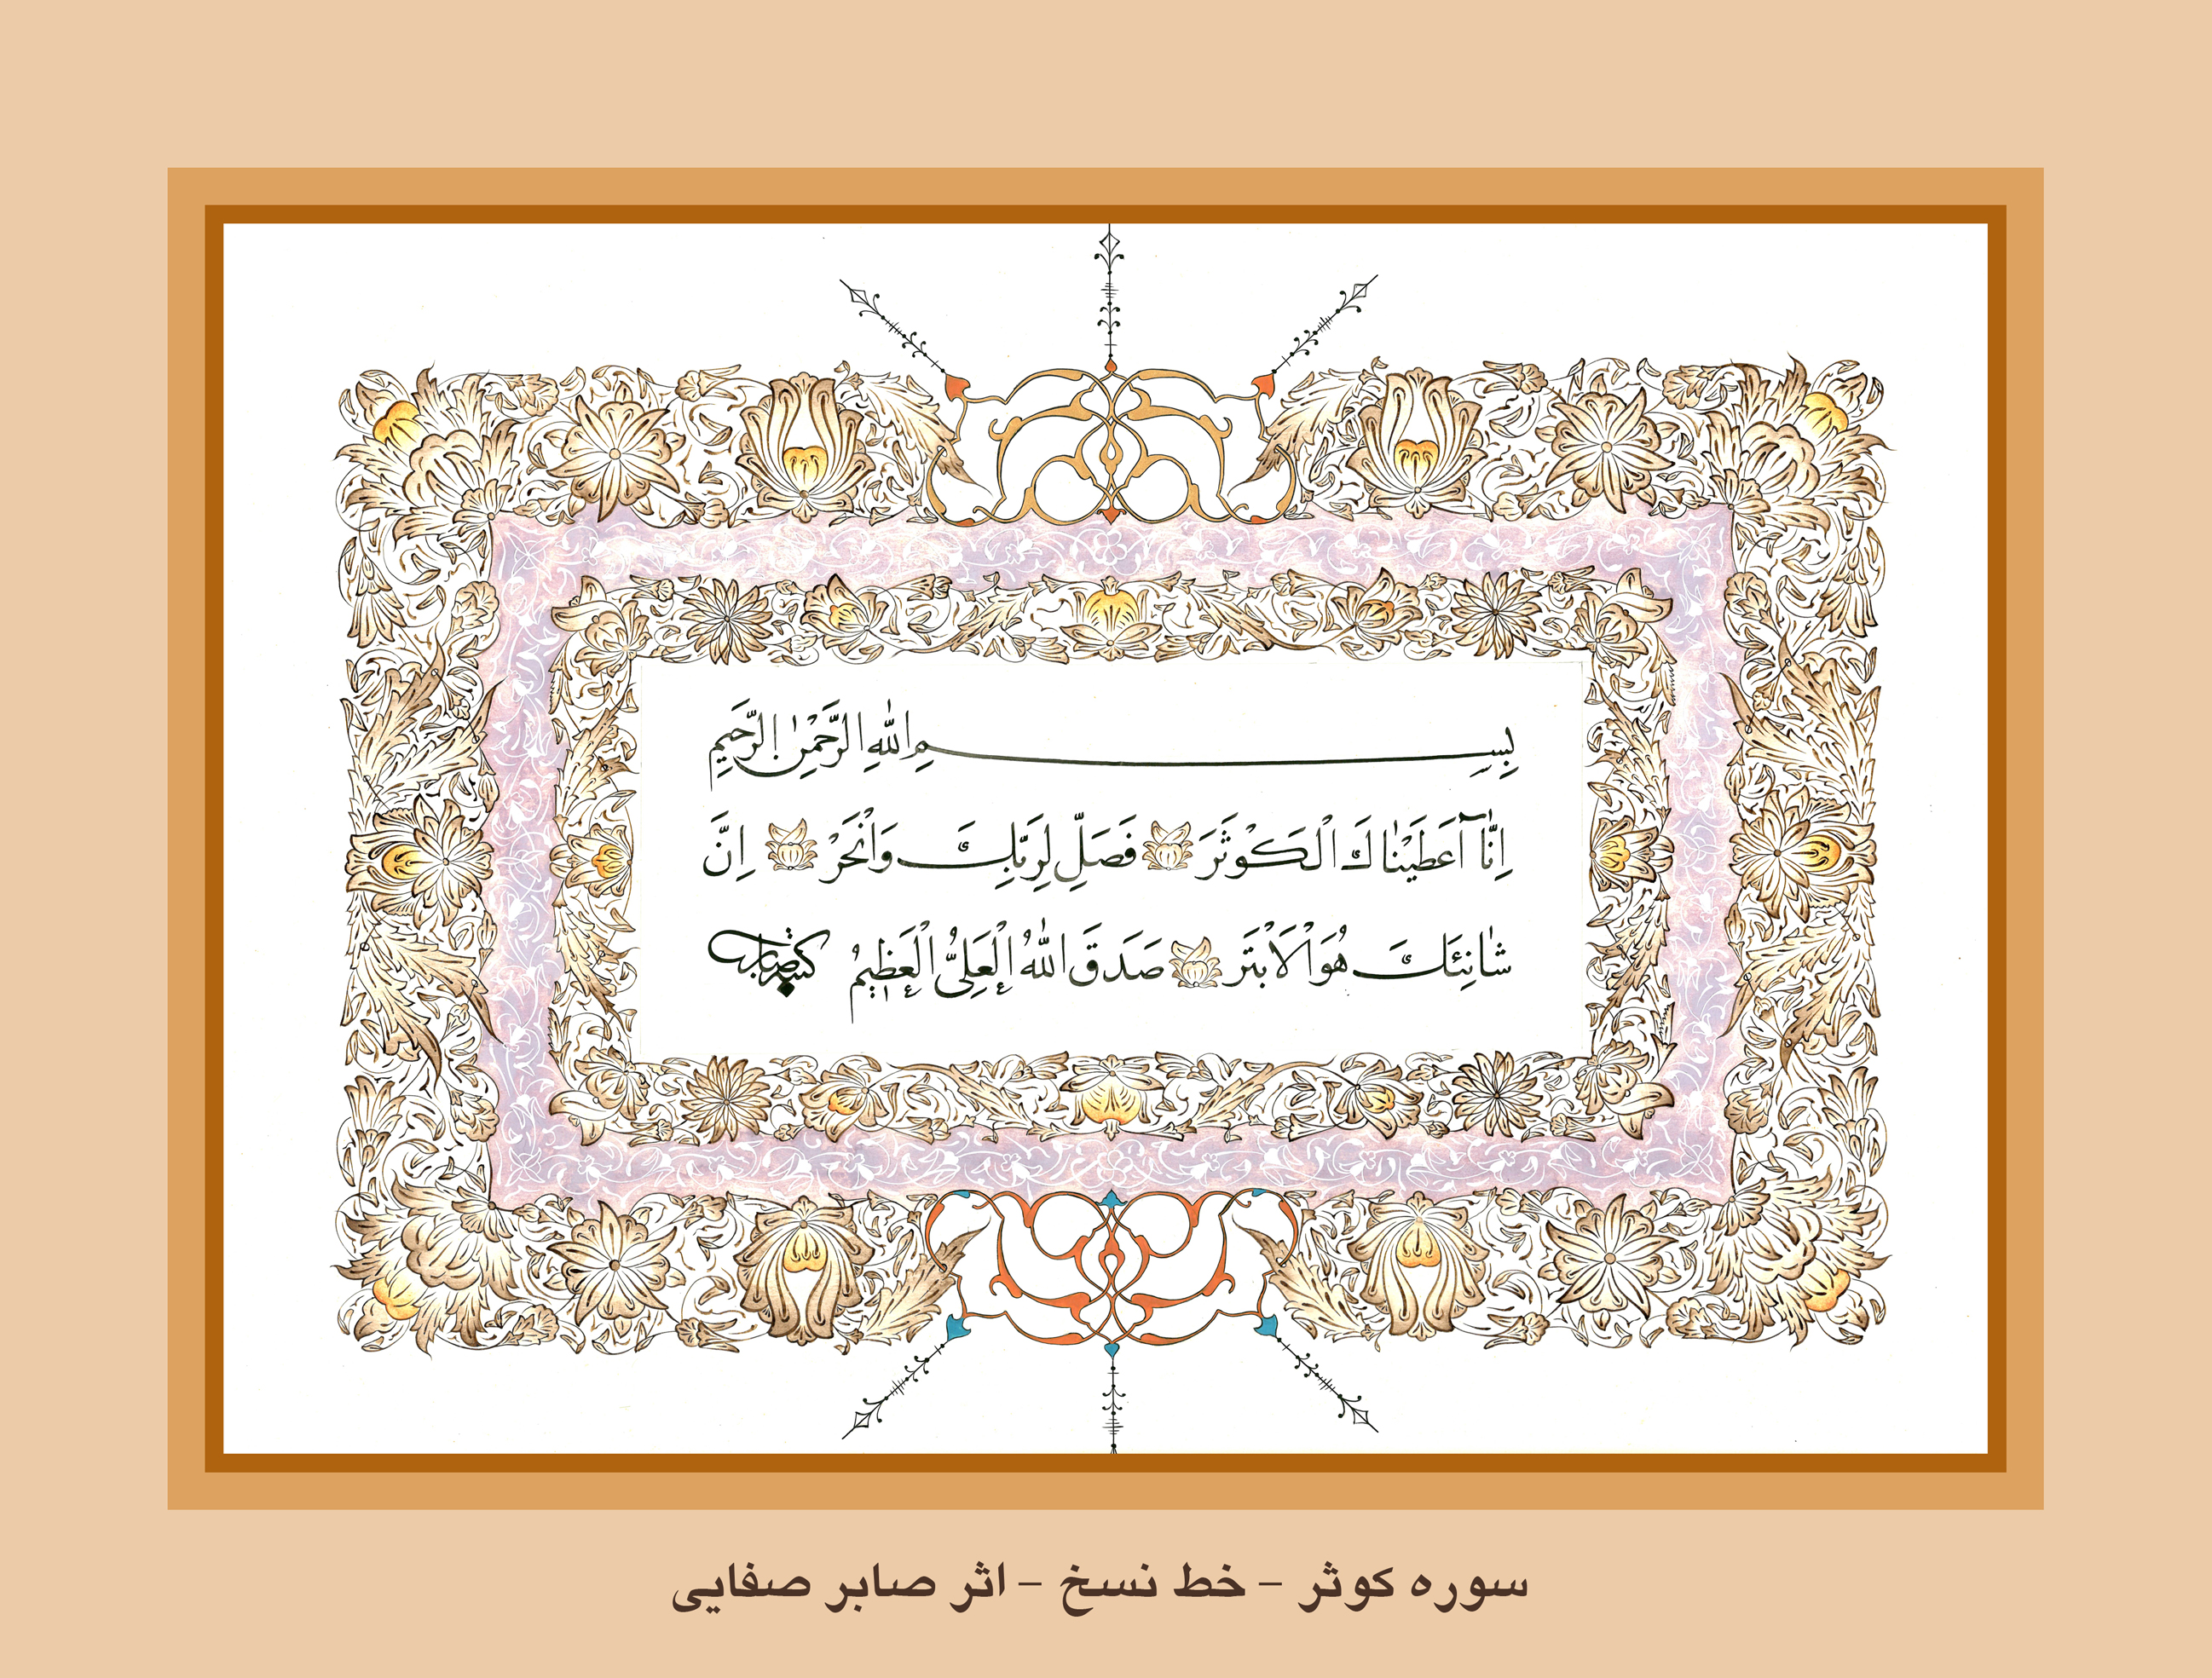 بِسِمِ اللّٰهِ الرَّحْمٰنِ الرَّحیمِ
اِنّٰا اَعطَیْنٰاكَ الْکَوْثَرَ فَصَلِّ لِرَبِّكَ وَانْحَرْ اِنَّ
شٰانِئَكَ هُوَ الْاَبْتَر صَدَقَ اللّٰهُ الْعَلِیُّ الْعَظیمُ کتبه صابر
سوره کوثر - خط نسخ - اثر صابر صفایی